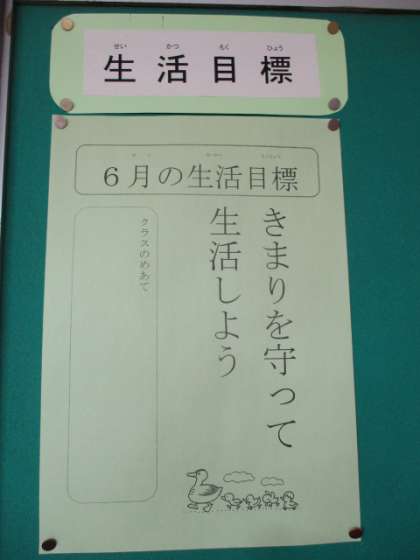 せい かつ もく ひょう
生活目標
6月の生活目標
きまりを守って
生活しよう
クラスのめあて